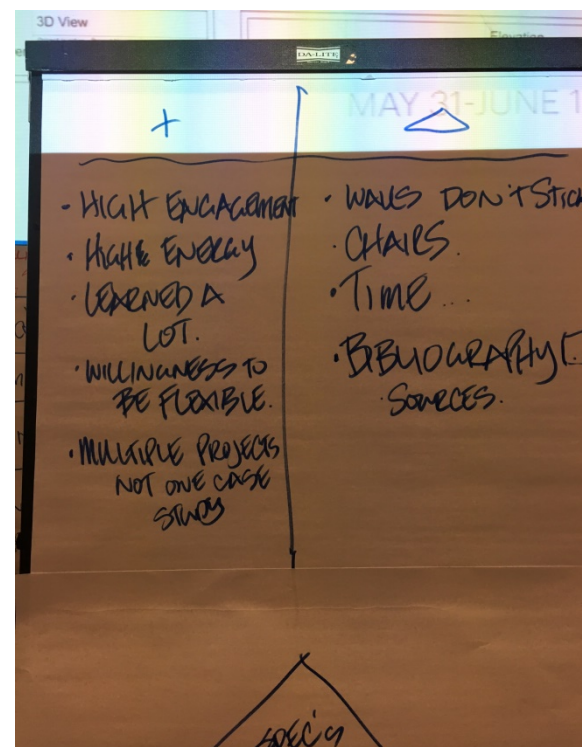 3D View
Elevation
DA-LITE
MAY 31-JUNE 1
+
△
· HIGH ENGAGEMENT
· HIGH ENERGY
· LEARNED A
LOT.
· WILLINGNESS TO
BE FLEXIBLE.
· MULTIPLE PROJECTS
NOT ONE CASE
STUDY
· WALLS DON'T STICK
· CHAIRS.
· TIME...
· BIBLIOGRAPHY
· SOURCES.
SPEC'S